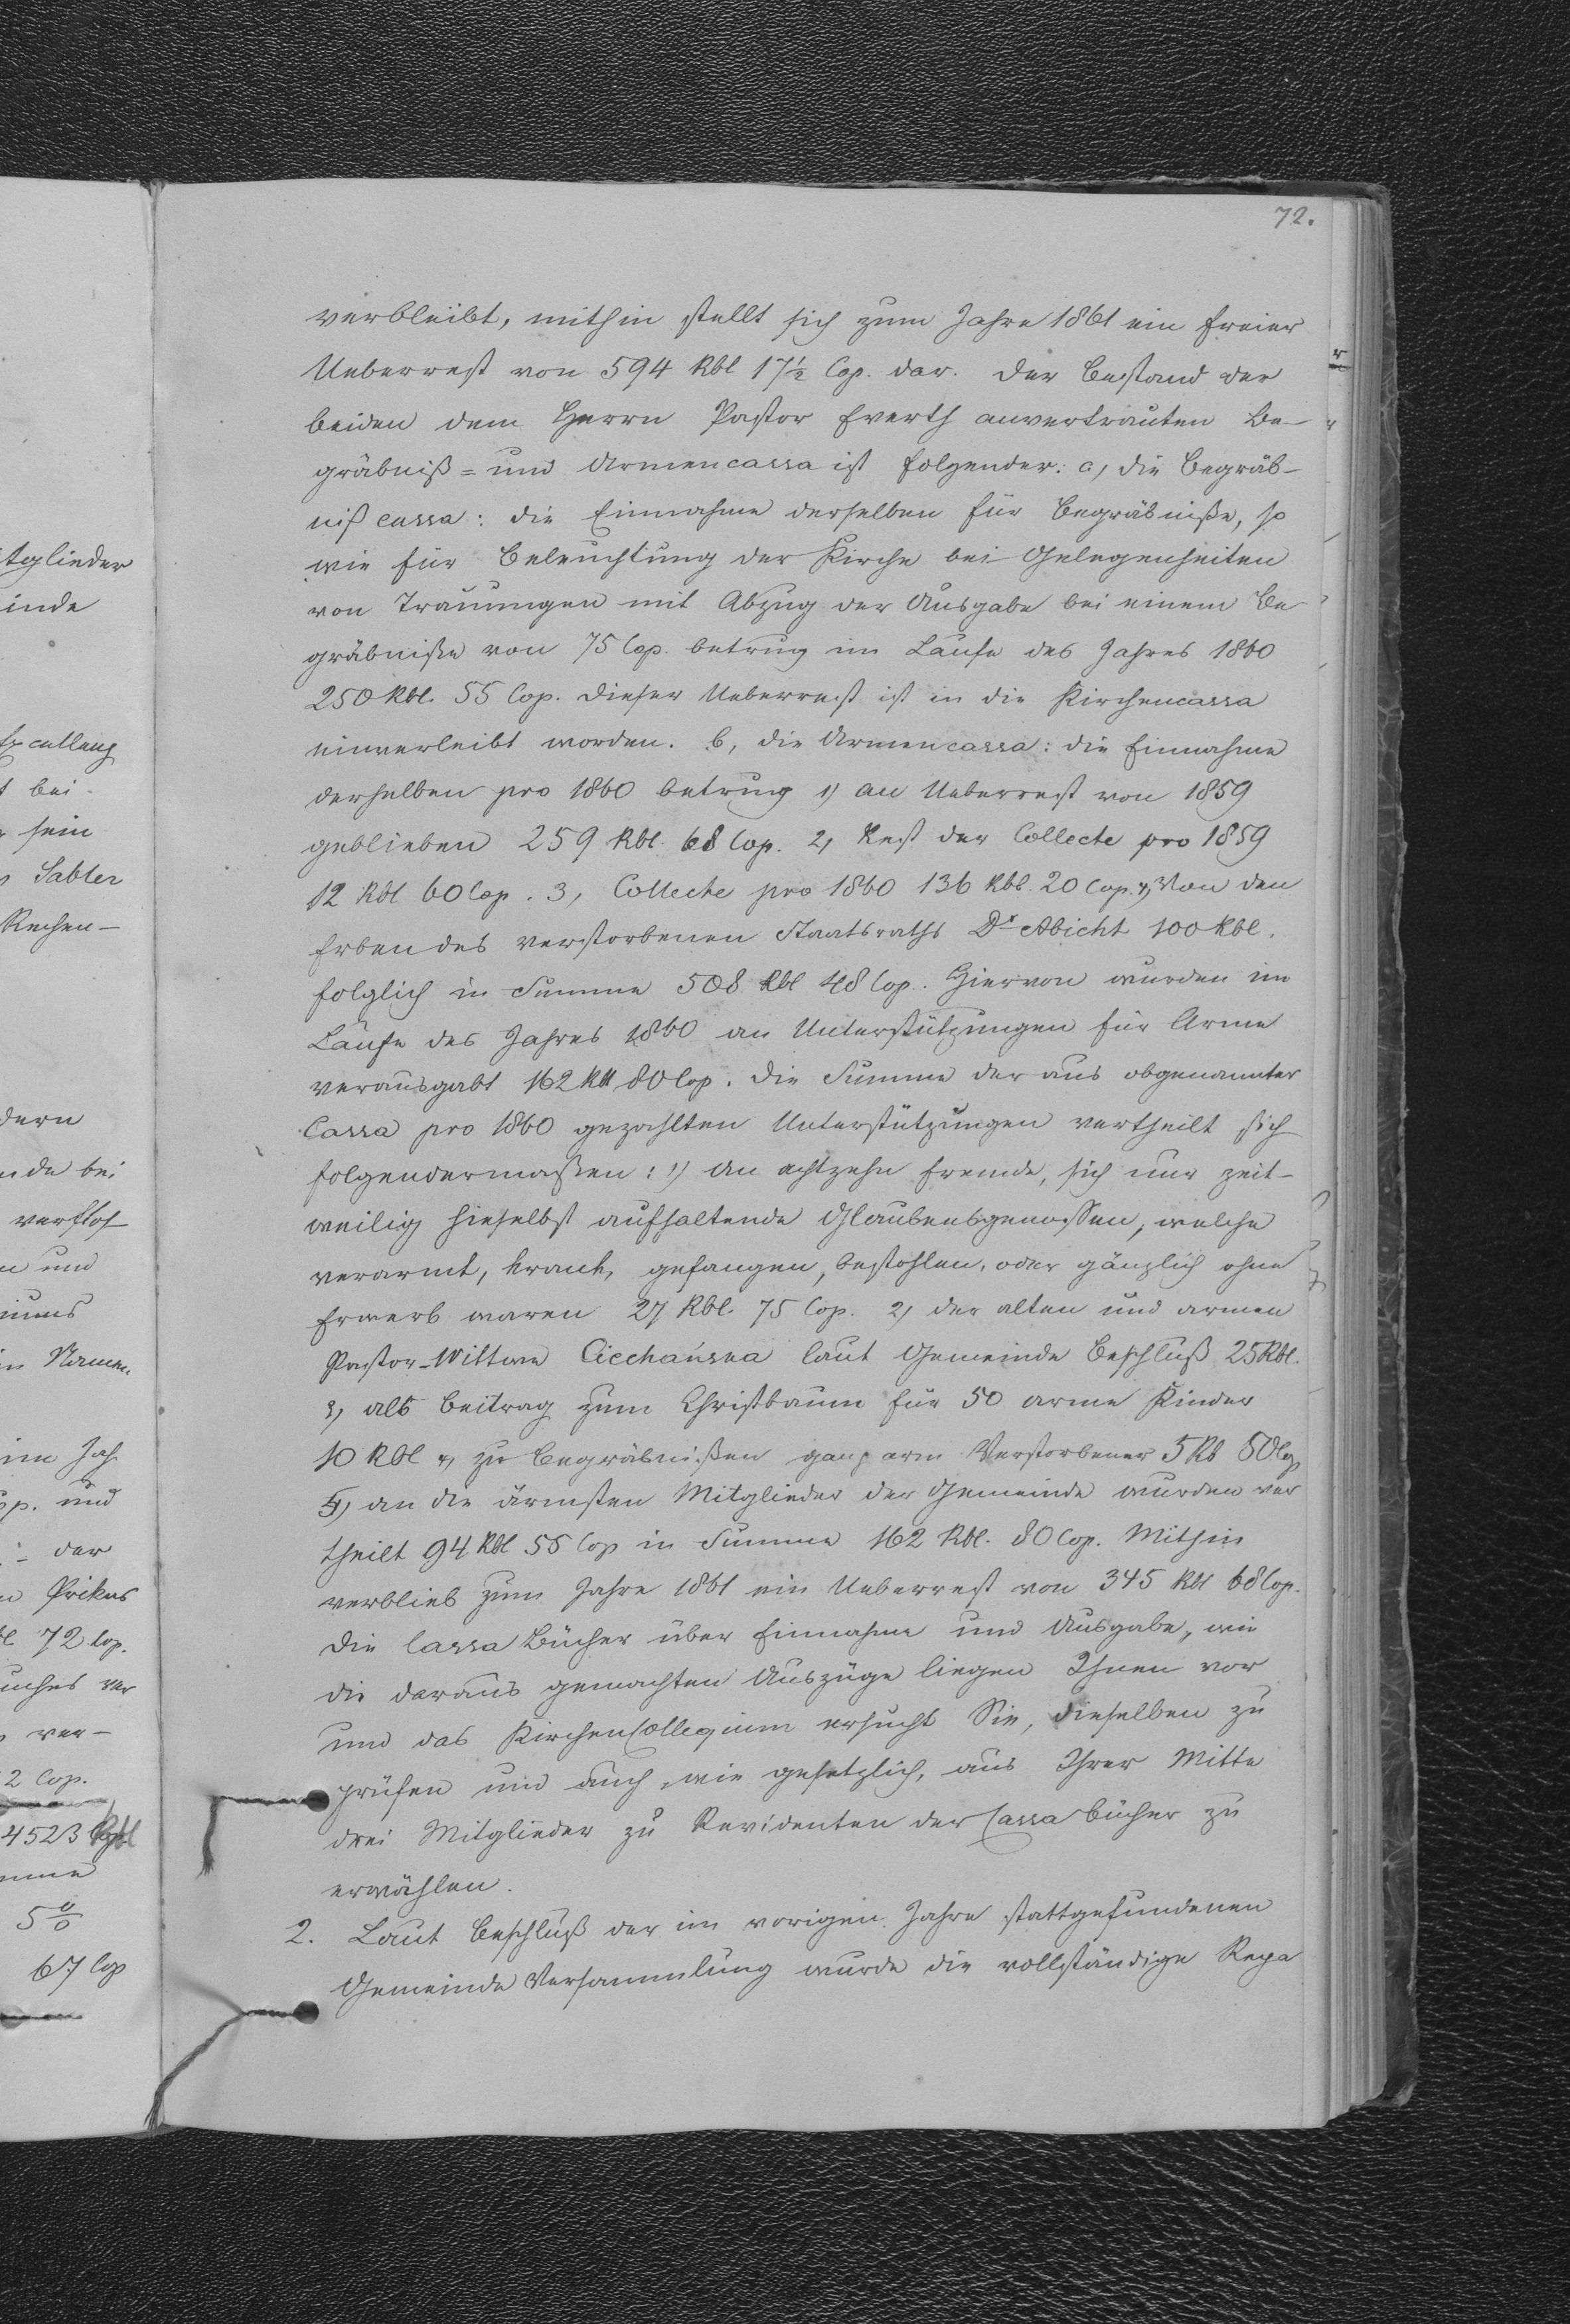 72.
verbleibt, mithin stellt sich zum Jahre 1861 ein freier
Ueberrest von 594 Rbl 17½ Cop. dar. Der Bestand der
beiden dem Herrn Pastor Everth anvertrauten Be-
gräbniß= und Armencassa ist folgender: a, die Begräb-
niß cassa: die Einnahme derselben für Begräbniße, so
wie für Beleuchtung der Kirche bei Gelegenheiten
von Trauungen mit Abzug der Ausgabe bei einem Be-
gräbniße von 75 Cop. betrug im Laufe des Jahres 1860
250 Rbl. 55 Cop. Dieser Ueberrest ist in die Kirchencassa
einverleibt worden. b, die Armencassa: die Einnahme
derselben pro 1860 betrug 1) an Ueberrest von 1859
geblieben 259 Rbl. 68 Cop. 2, Rest der Collecte pro 1859
12 Rbl 60 Cop. 3, Collecte pro 1860 136 Rbl. 20 Cop. 4, Von den
Erben des verstorbenen Staatsraths Dr Abicht 100 Rbl.
folglich in Summa 508 Rbl 48 Cop. Hiervon wurden im
Laufe des Jahres 1860 an Unterstützungen für Arme
verausgabt 162 Rbl 80 Cop. Die Summe der aus obgenannter
Cassa pro 1860 gezahlten Unterstützungen vertheilt sich
folgendermaßen: 1) An achtzehn fremde, sich nur zeit-
weilig hieselbst aufhaltende Glaubensgenossen, welche
verarmt, krank, gefangen, bestohlen, oder gänzlich ohne
Erwerb waren 27 Rbl. 75 Cop. 2, der alten und armen
Pastor-Wittwe Ciechańska laut Gemeinde Beschluß 25 Rbl.
3, als Beitrag zum Christbaum für 50 arme Kinder
10 Rbl 4, zu Begräbnißen ganz arm Verstorbener 5 Rb 50 Cop
5, an die ärmsten Mitglieder der Gemeinde wurden ver
theilt 94 Rbl 55 Cop in Summa 162 Rbl. 80 Cop. Mithin
verblieb zum Jahre 1861 ein Ueberrest von 345 Rbl 68 Cop.
Die Cassa Bücher über Einnahme und Ausgabe, wie
die daraus gemachten Auszüge liegen Ihnen vor
und das Kirchen Collegium ersucht Sie, dieselben zu
prüfen und auch, wie gesetzlich, aus Ihrer Mitte
drei Mitglieder zu Revidenten der Cassa bücher zu
erwählen.
2. Laut Beschluß der im vorigen Jahre stattgefundenen
Gemeinde Versammlung wurde die vollständige Repa
tglieder
inde
bei
sein
Sabler
Rechen-
dern
nde bei
verfloß
und
in Namen
im Jah
Cop. und
der
Prikas
72 Cop.
ver-
2 Cop.
4523 Rbl
5 %
67 Cop